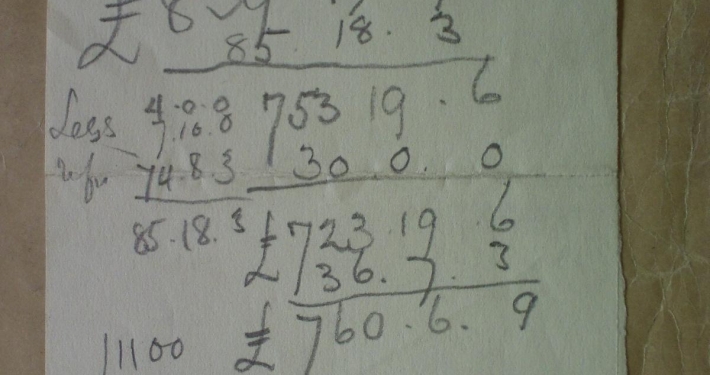 £ 85. 18. 3
4.0.0 753 19. 6
Less 7.10.0
74.8.3 30. 0. 0
85.18.3 £723.19.6
36.7.3
11100 £760.6.9